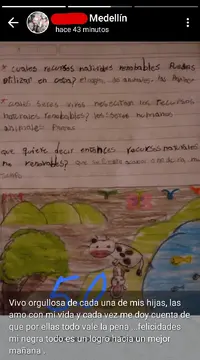 Medellín
hace 43 minutos
* cuales recursos naturales renobables Puedes
utilizar en casa?
* cuales seres vivos nesecitan los recursos
naturales renobables? los seres humanos
animales Plantas
que quiere decir entonces recursos naturales
no renobables?
5.0
Vivo orgullosa de cada una de mis hijas, las
amo con mi vida y cada vez me doy cuenta de
que por ellas todo vale la pena , .felicidades
mi negra todo es un logro hacia un mejor
mañana .